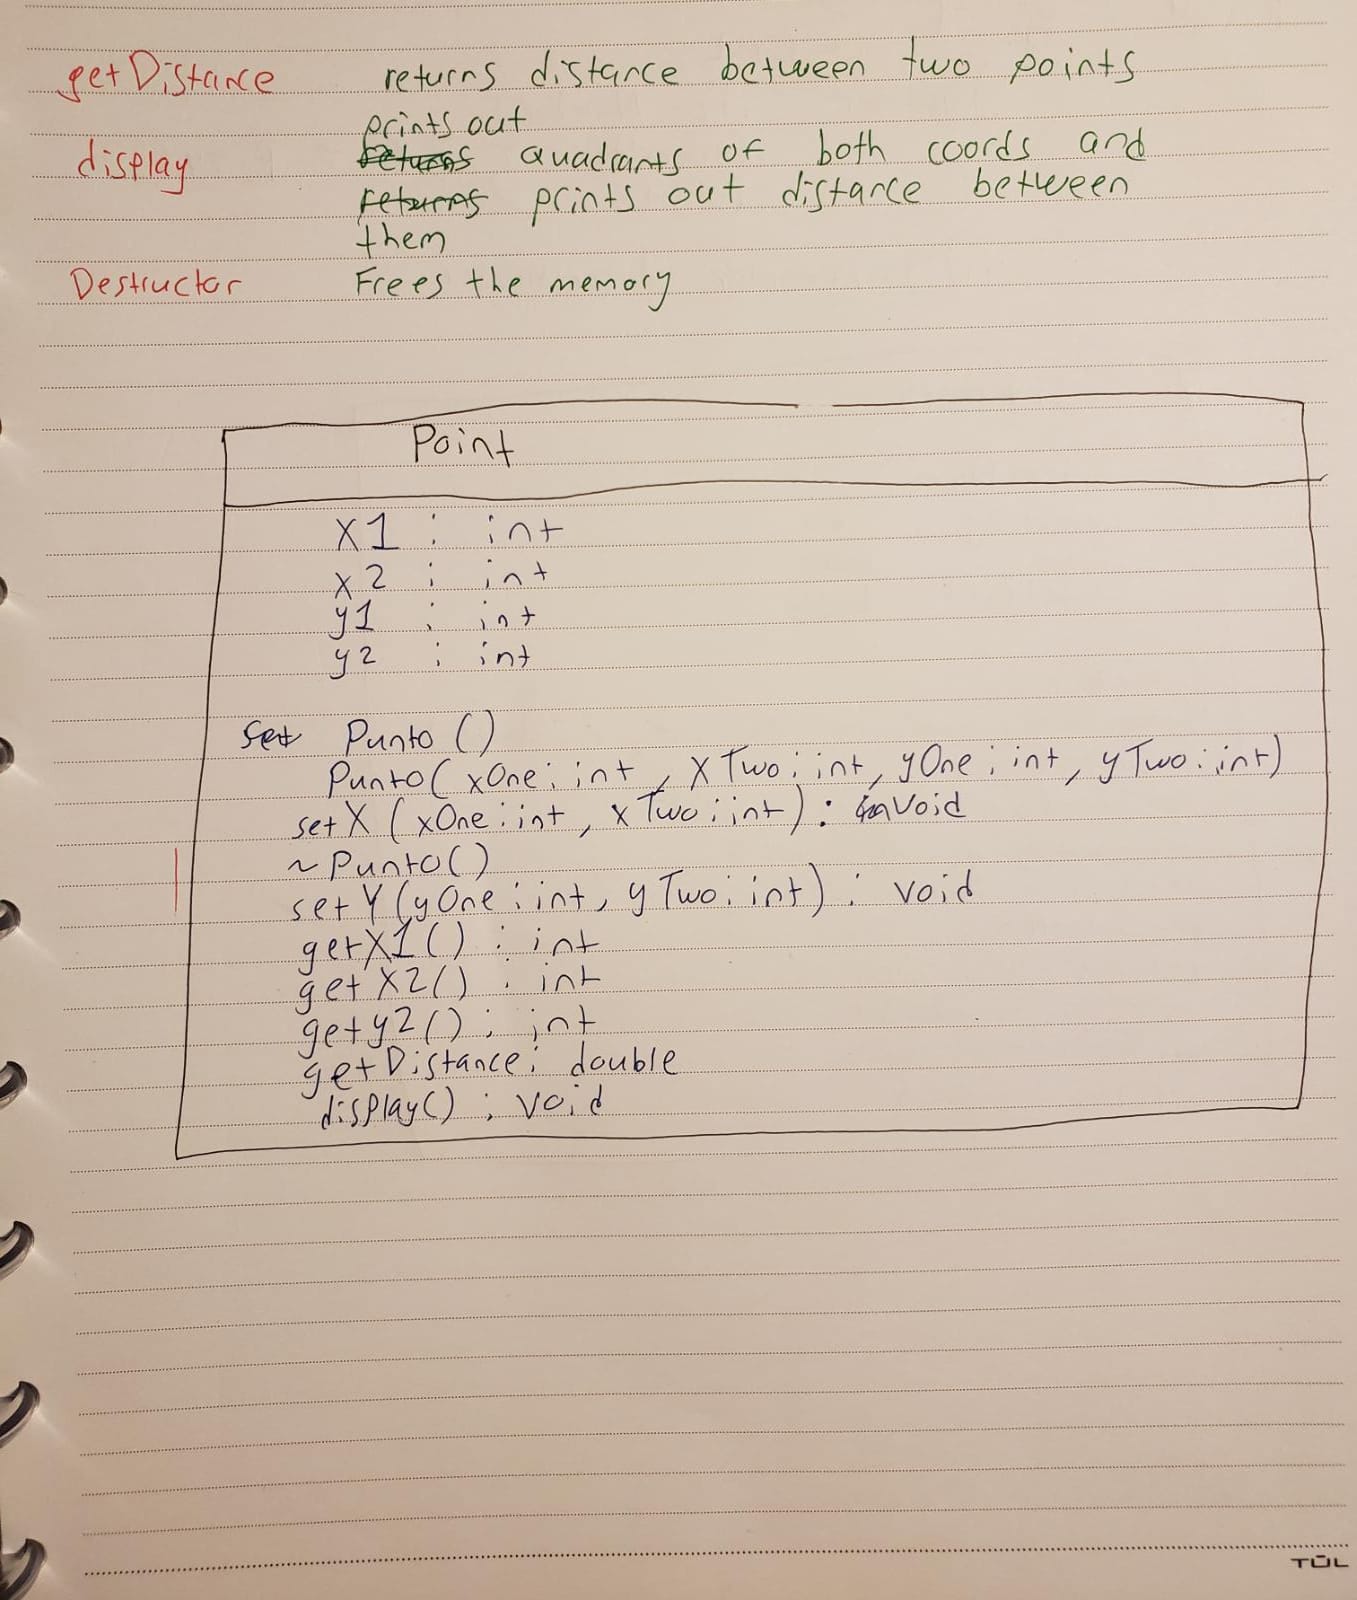 getDistance returns distance between two points
prints out
display returns quadrants of both coords and
returns prints out distance between
them
Destructor Frees the memory
Point
X1 : int
x2 : int
y1 : int
y2 : int
set Punto ()
Punto( xOne : int , XTwo : int, yOne : int, yTwo : int)
setX ( xOne : int , xTwo : int) : Void
~ Punto()
setY (yOne : int, yTwo : int) : void
getX1() : int
getX2() : int
gety2() : int
getDistance : double
display() : void
TŪL